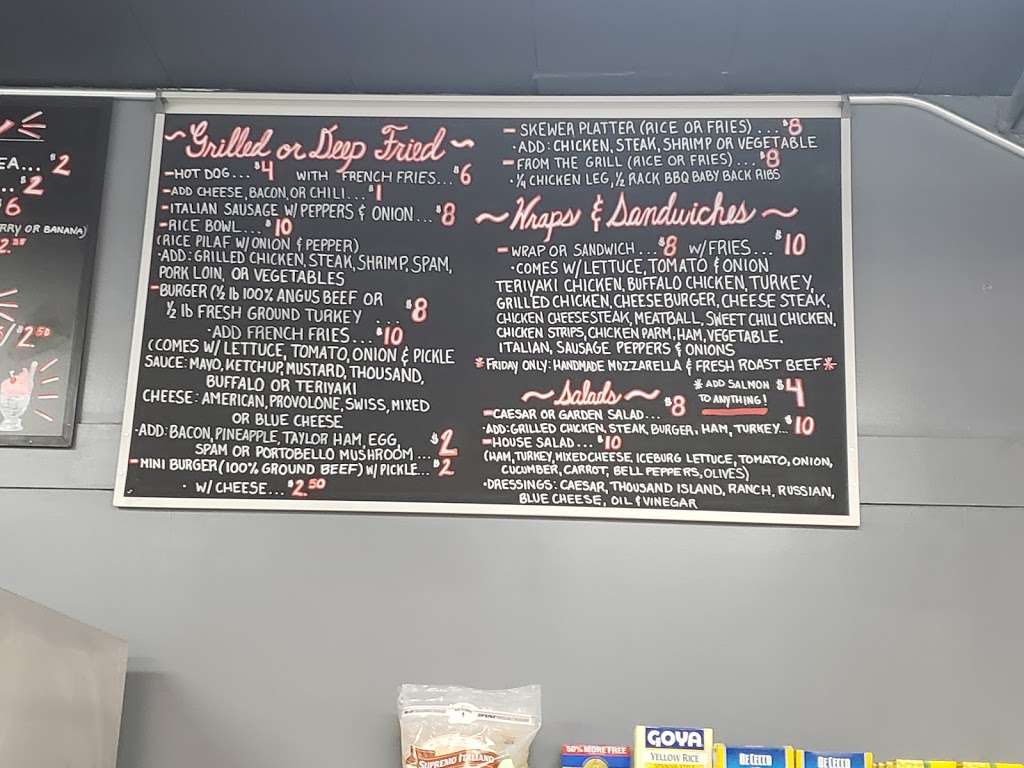 EA... $2
... $2
$6
RRY OR BANANA)
$2.50
~Grilled or Deep Fried~
-HOT DOG... $4 WITH FRENCH FRIES... $6
-ADD CHEESE, BACON, OR CHILI... $1
-ITALIAN SAUSAGE W/ PEPPERS & ONION... $8
-RICE BOWL... $10
(RICE PILAF W/ONION & PEPPER)
·ADD: GRILLED CHICKEN, STEAK, SHRIMP, SPAM,
PORK LOIN, OR VEGETABLES
-BURGER (½ lb 100% ANGUS BEEF OR
½ lb FRESH GROUND TURKEY ... $8
·ADD FRENCH FRIES... $10
(COMES W/ LETTUCE, TOMATO, ONION & PICKLE
SAUCE: MAYO, KETCHUP, MUSTARD, THOUSAND,
BUFFALO OR TERIYAKI
CHEESE: AMERICAN, PROVOLONE, SWISS, MIXED
OR BLUE CHEESE
·ADD: BACON, PINEAPPLE, TAYLOR HAM, EGG,
SPAM OR PORTOBELLO MUSHROOM ... $2
-MINI BURGER (100% GROUND BEEF) W/ PICKLE... $2
· W/ CHEESE... $2.50
- SKEWER PLATTER (RICE OR FRIES) ... $8
·ADD: CHICKEN, STEAK, SHRIMP OR VEGETABLE
-FROM THE GRILL (RICE OR FRIES) ... $8
·¼ CHICKEN LEG, ½ RACK BBQ BABY BACK RIBS
~Wraps & Sandwiches~
-WRAP OR SANDWICH... $8 W/FRIES... $10
·COMES W/LETTUCE, TOMATO & ONION
TERIYAKI CHICKEN, BUFFALO CHICKEN, TURKEY,
GRILLED CHICKEN, CHEESEBURGER, CHEESE STEAK,
CHICKEN CHEESESTEAK, MEATBALL, SWEET CHILI CHICKEN,
CHICKEN STRIPS, CHICKEN PARM, HAM, VEGETABLE,
ITALIAN, SAUSAGE PEPPERS & ONIONS
*FRIDAY ONLY: HANDMADE MOZZARELLA & FRESH ROAST BEEF*
~Salads~
* ADD SALMON $4
TO ANYTHING!
-CAESAR OR GARDEN SALAD... $8
·ADD: GRILLED CHICKEN, STEAK, BURGER, HAM, TURKEY... $10
-HOUSE SALAD... $10
(HAM, TURKEY, MIXED CHEESE, ICEBURG LETTUCE, TOMATO, ONION,
CUCUMBER, CARROT, BELL PEPPERS, OLIVES)
·DRESSINGS: CAESAR, THOUSAND ISLAND, RANCH, RUSSIAN,
BLUE CHEESE, OIL & VINEGAR
SUPREMO ITALIANO
50% MORE FREE
GOYA
YELLOW RICE
DE CECCO
DE CECCO